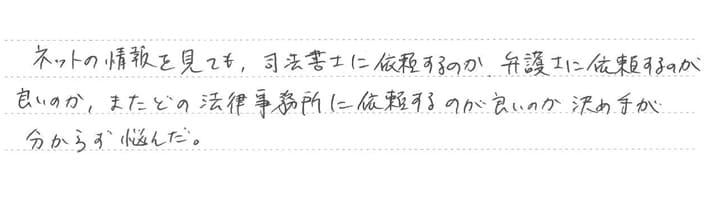 ネットの情報を見ても,司法書士に依頼するのか 弁護士に依頼するのが
良いのか,またどの法律事務所に依頼するのが良いのか決め手が
分からず悩んだ。